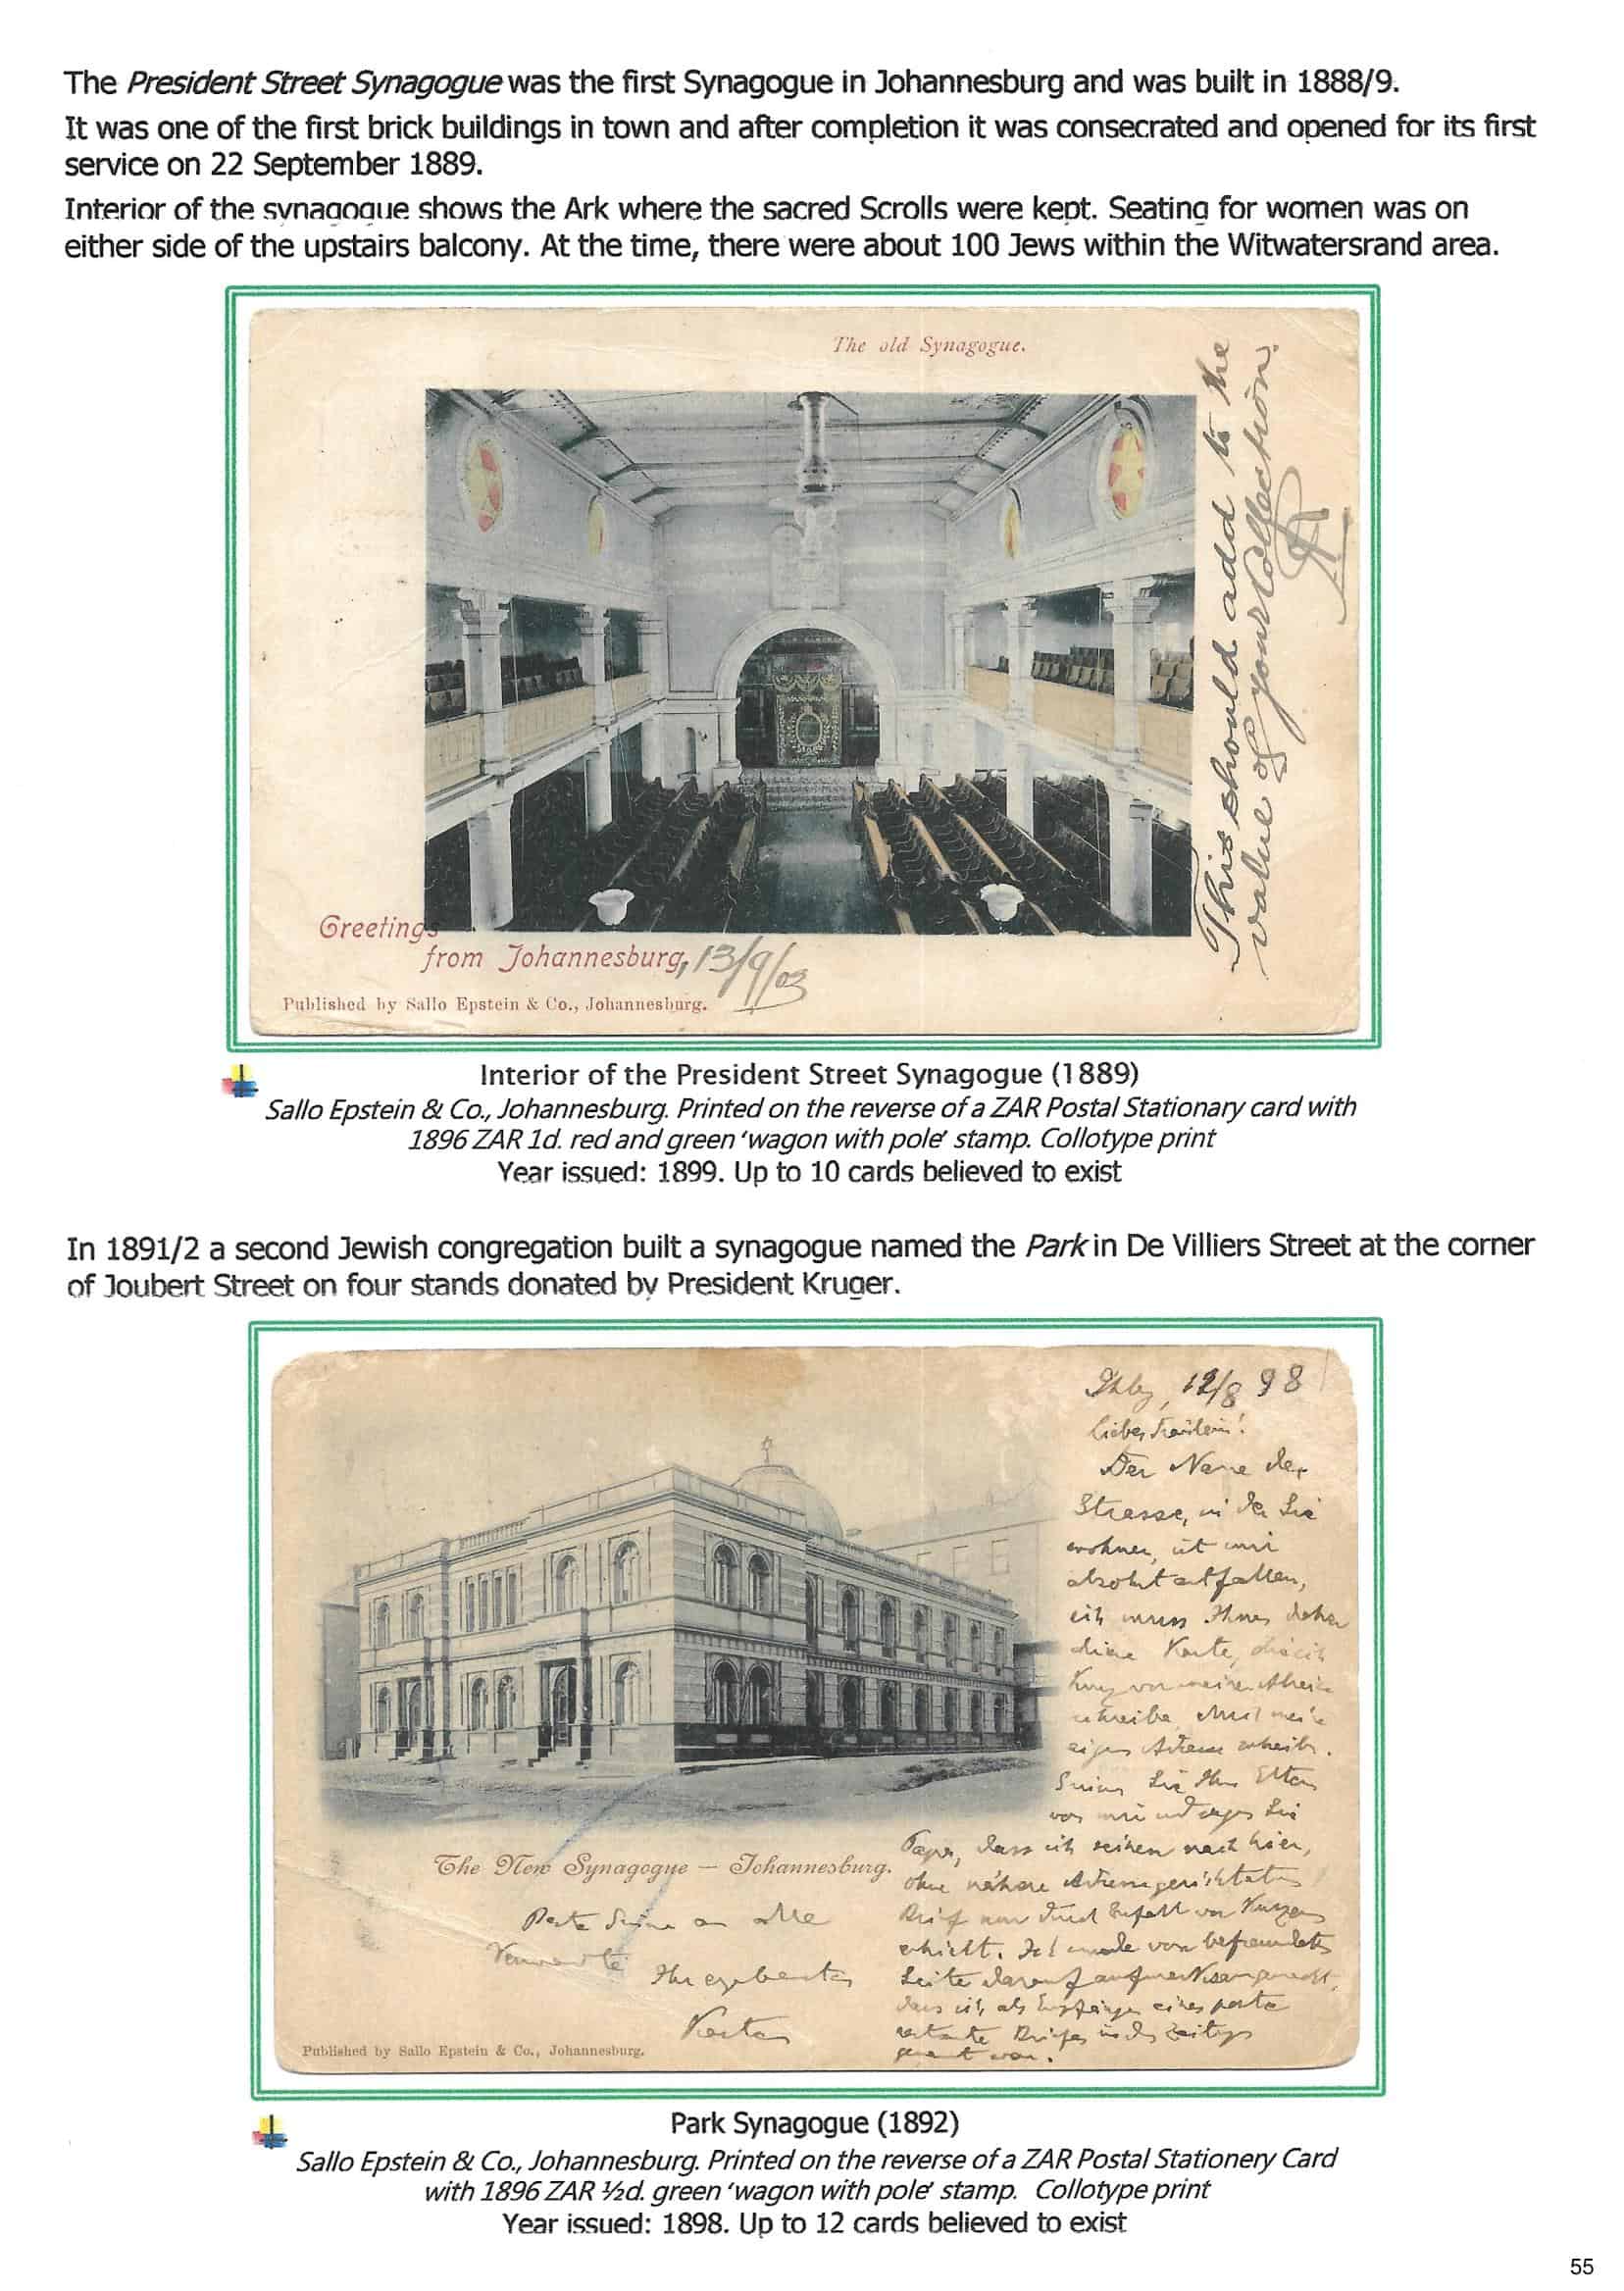 The President Street Synagogue was the first Synagogue in Johannesburg and was built in 1888/9.
It was one of the first brick buildings in town and after completion it was consecrated and opened for its first
service on 22 September 1889.
Interior of the synagogue shows the Ark where the sacred Scrolls were kept. Seating for women was on
either side of the upstairs balcony. At the time, there were about 100 Jews within the Witwatersrand area.
The old Synagogue.
This should add to the
value of your Collection.
Greetings
from Johannesburg, 13/9/03
Published by Sallo Epstein & Co., Johannesburg.
Interior of the President Street Synagogue (1889)
Sallo Epstein & Co., Johannesburg. Printed on the reverse of a ZAR Postal Stationary card with
1896 ZAR 1d. red and green ‘wagon with pole’ stamp. Collotype print
Year issued: 1899. Up to 10 cards believed to exist
In 1891/2 a second Jewish congregation built a synagogue named the Park in De Villiers Street at the corner
of Joubert Street on four stands donated by President Kruger.
12/8 98
Der Name der
Strasse, in der Sie
wohnen, ist mir
absolut entfallen,
ich muss Ihnen daher
diese Karte, die ich
kurz vor meiner
schreibe
Sie Ihre Eltern
von mir und sagen Sie
Papa, dass ich seinen nach hier,
ohne nähere
Brief nur durch Zufall vor Kurzem
erhielt. Ich wurde von befreundeter
Seite darauf aufmerksam gemacht,
dass ich als Empfänger eines poste
restante Briefes in den
genannt war.
The New Synagogue – Johannesburg.
an alle
Verwandte
Ihr ergebenster
Published by Sallo Epstein & Co., Johannesburg.
Park Synagogue (1892)
Sallo Epstein & Co., Johannesburg. Printed on the reverse of a ZAR Postal Stationery Card
with 1896 ZAR ½d. green ‘wagon with pole’ stamp. Collotype print
Year issued: 1898. Up to 12 cards believed to exist
55